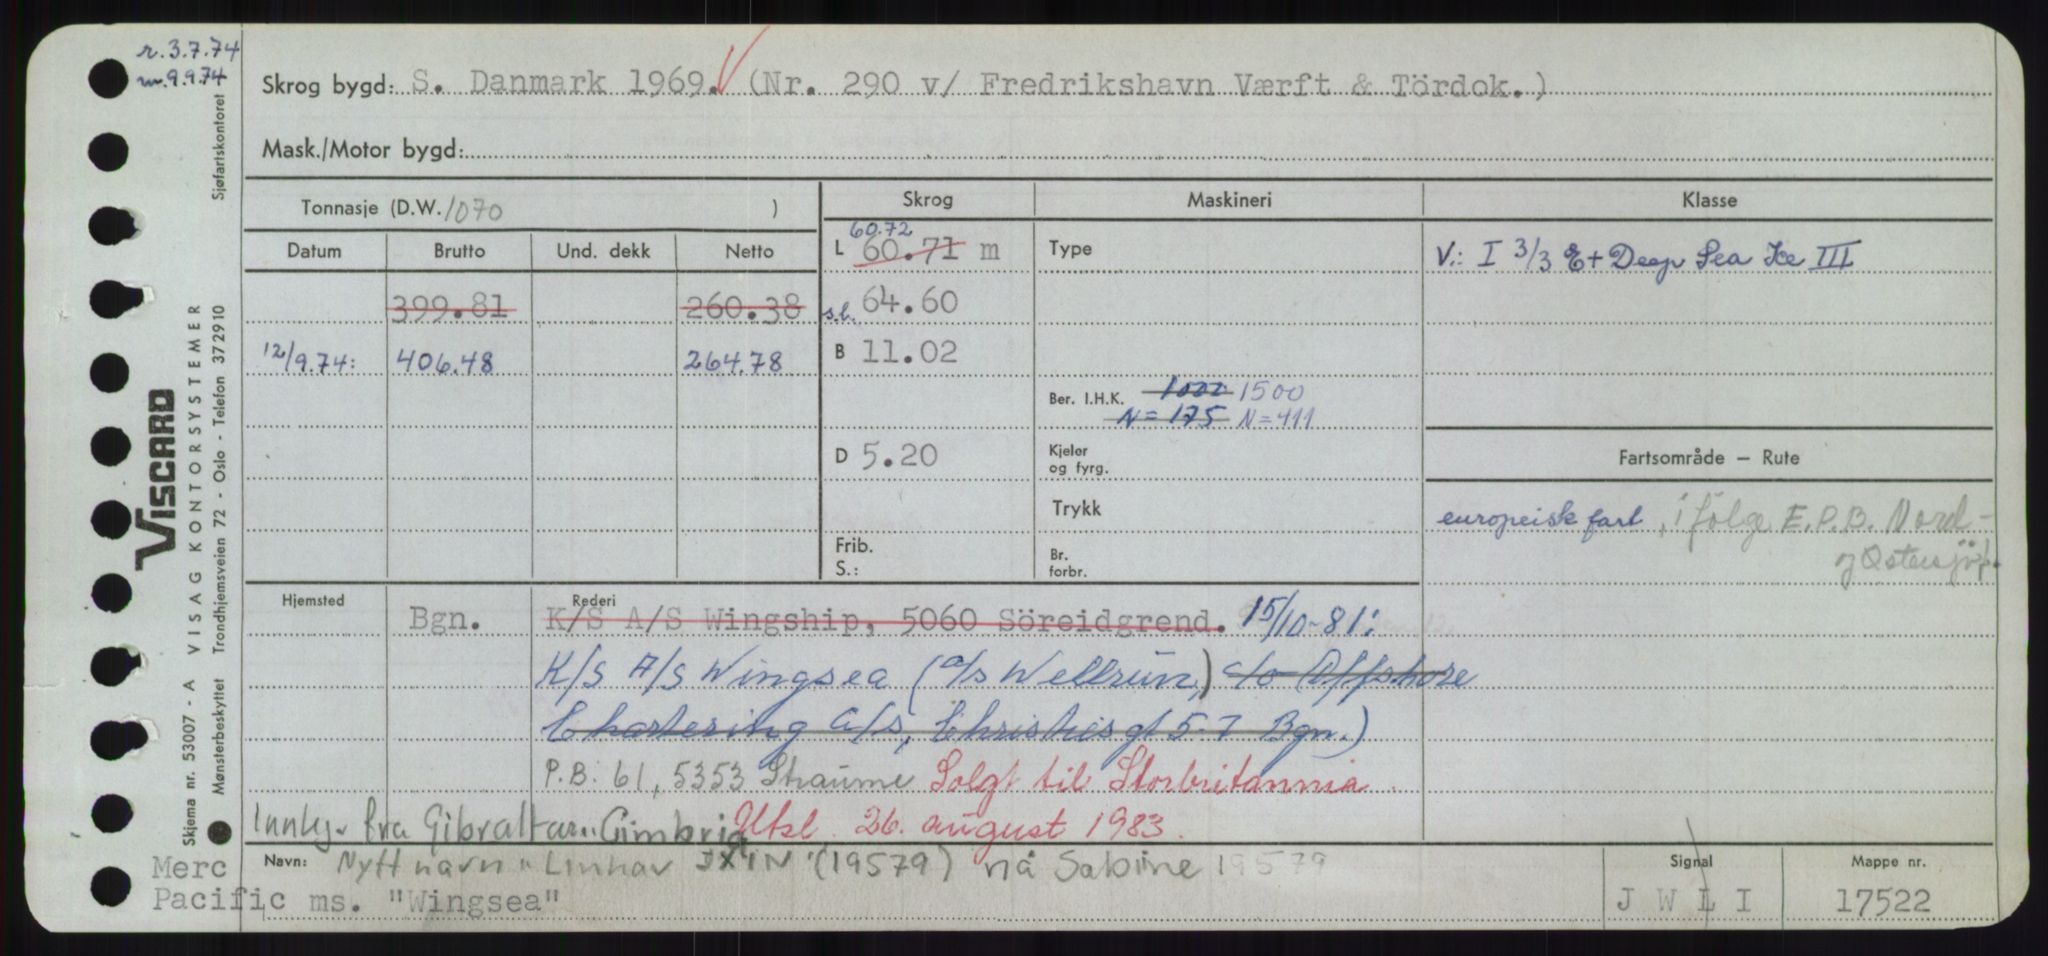 r. 3.7.74
m. 9.9.74
Sjøfartskontoret
Skrog bygd: S. Danmark 1969. (Nr. 290 v/ Fredrikshavn Værft & Tördok.)
Mask./Motor bygd:
Tonnasje (D.W. 1070 )
Datum Brutto Und. dekk Netto
399.81 260.38
12/9.74: 406.48 264.78
Skrog
60.72
L 60.71 m
s.l. 64.60
B 11.02
D 5.20
Frib.
S.:
Maskineri
Type
Ber. I.H.K. 1000 1500
N = 175 N = 411
Kjeler
og fyrg.
Trykk
Br.
forbr.
Klasse
V.: I 3/3 E + Deep Sea Ice III
Fartsområde – Rute
europeisk fart, ifølge E.P.B. Nord-
og Østersjø
Hjemsted Rederi
Bgn. K/S A/S Wingship, 5060 Söreidgrend. 15/10-81:
K/S A/S Wingsea (a/s Wellrun,) c/o Offshore
Chartering a/s, Christiesgt 5-7 Bgn.)
P.B. 61, 5353 Straume Solgt til Storbritannia.
Innkj. fra Gibraltar: Cimbria Utsl. 26. august 1983.
Navn: Nytt navn "Linhav JXIN (19579) nå Sabine 19579
Merc
Pacific ms. "Wingsea"
Signal
J W L I
Mappe nr.
17522
VISCARD
VISAG KONTORSYSTEMER
Trondhjemsveien 72 - Oslo - Telefon 372910
Skjema nr. 53007 - A
Mønsterbeskyttet